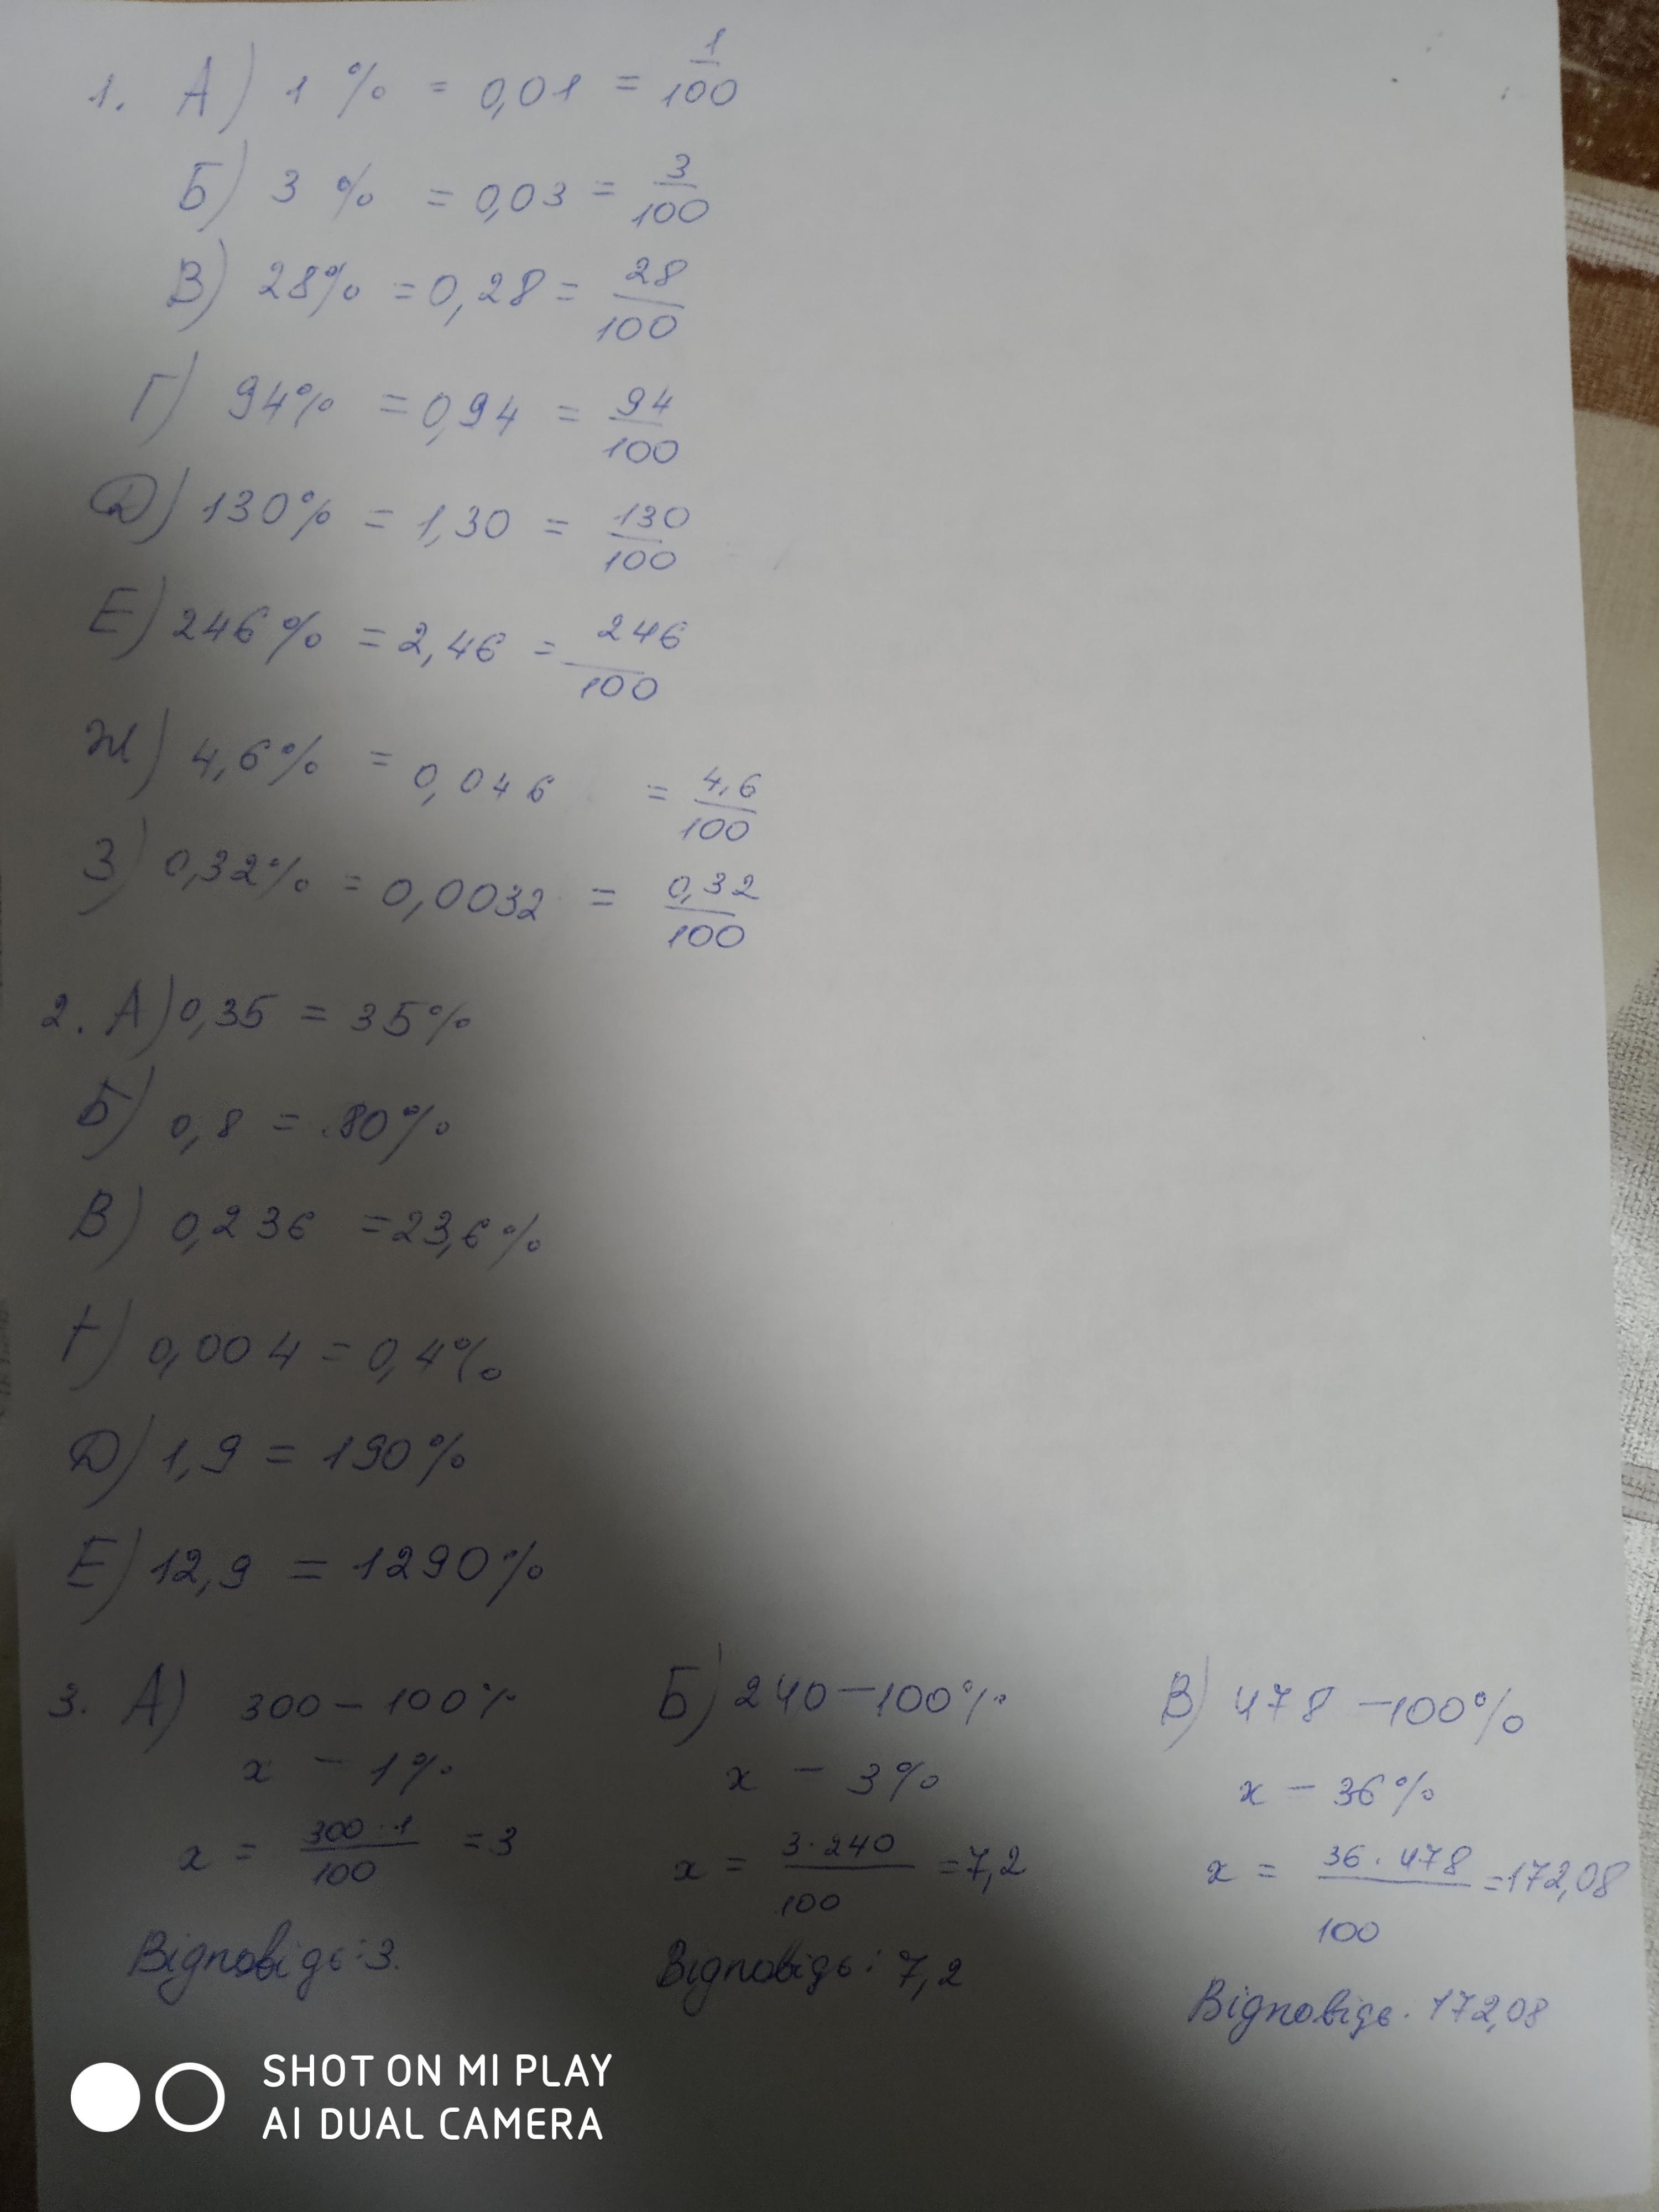 1. А) 1 % = 0,01 = 1/100
Б) 3 % = 0,03 = 3/100
В) 28% = 0,28 = 28/100
Г) 94% = 0,94 = 94/100
Д) 130% = 1,30 = 130/100
Е) 246% = 2,46 = 246/100
Ж) 4,6% = 0,046 = 4,6/100
З) 0,32% = 0,0032 = 0,32/100
2. А) 0,35 = 35%
Б) 0,8 = 80%
В) 0,236 = 23,6%
Г) 0,004 = 0,4%
Д) 1,9 = 190%
Е) 12,9 = 1290%
3. А) 300 – 100%
x – 1%
x = 300·1/100 = 3
Відповідь: 3.
Б) 240 – 100%
x – 3%
x = 3·240/100 = 7,2
Відповідь: 7,2
В) 478 – 100%
x – 36%
x = 36·478/100 = 172,08
Відповідь. 172,08
SHOT ON MI PLAY
AI DUAL CAMERA